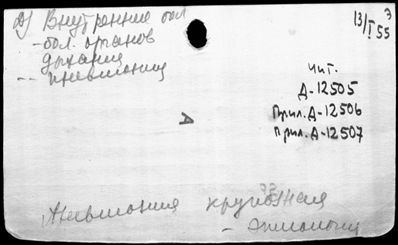 д) Внутренние бол
- бол. органов
дыхания
-- пневмония
13/I 55 э
Чит.
Д-12505
Прил. Д-12506
Прил. Д-12507
Д
Пневмония крупозная
- этиология